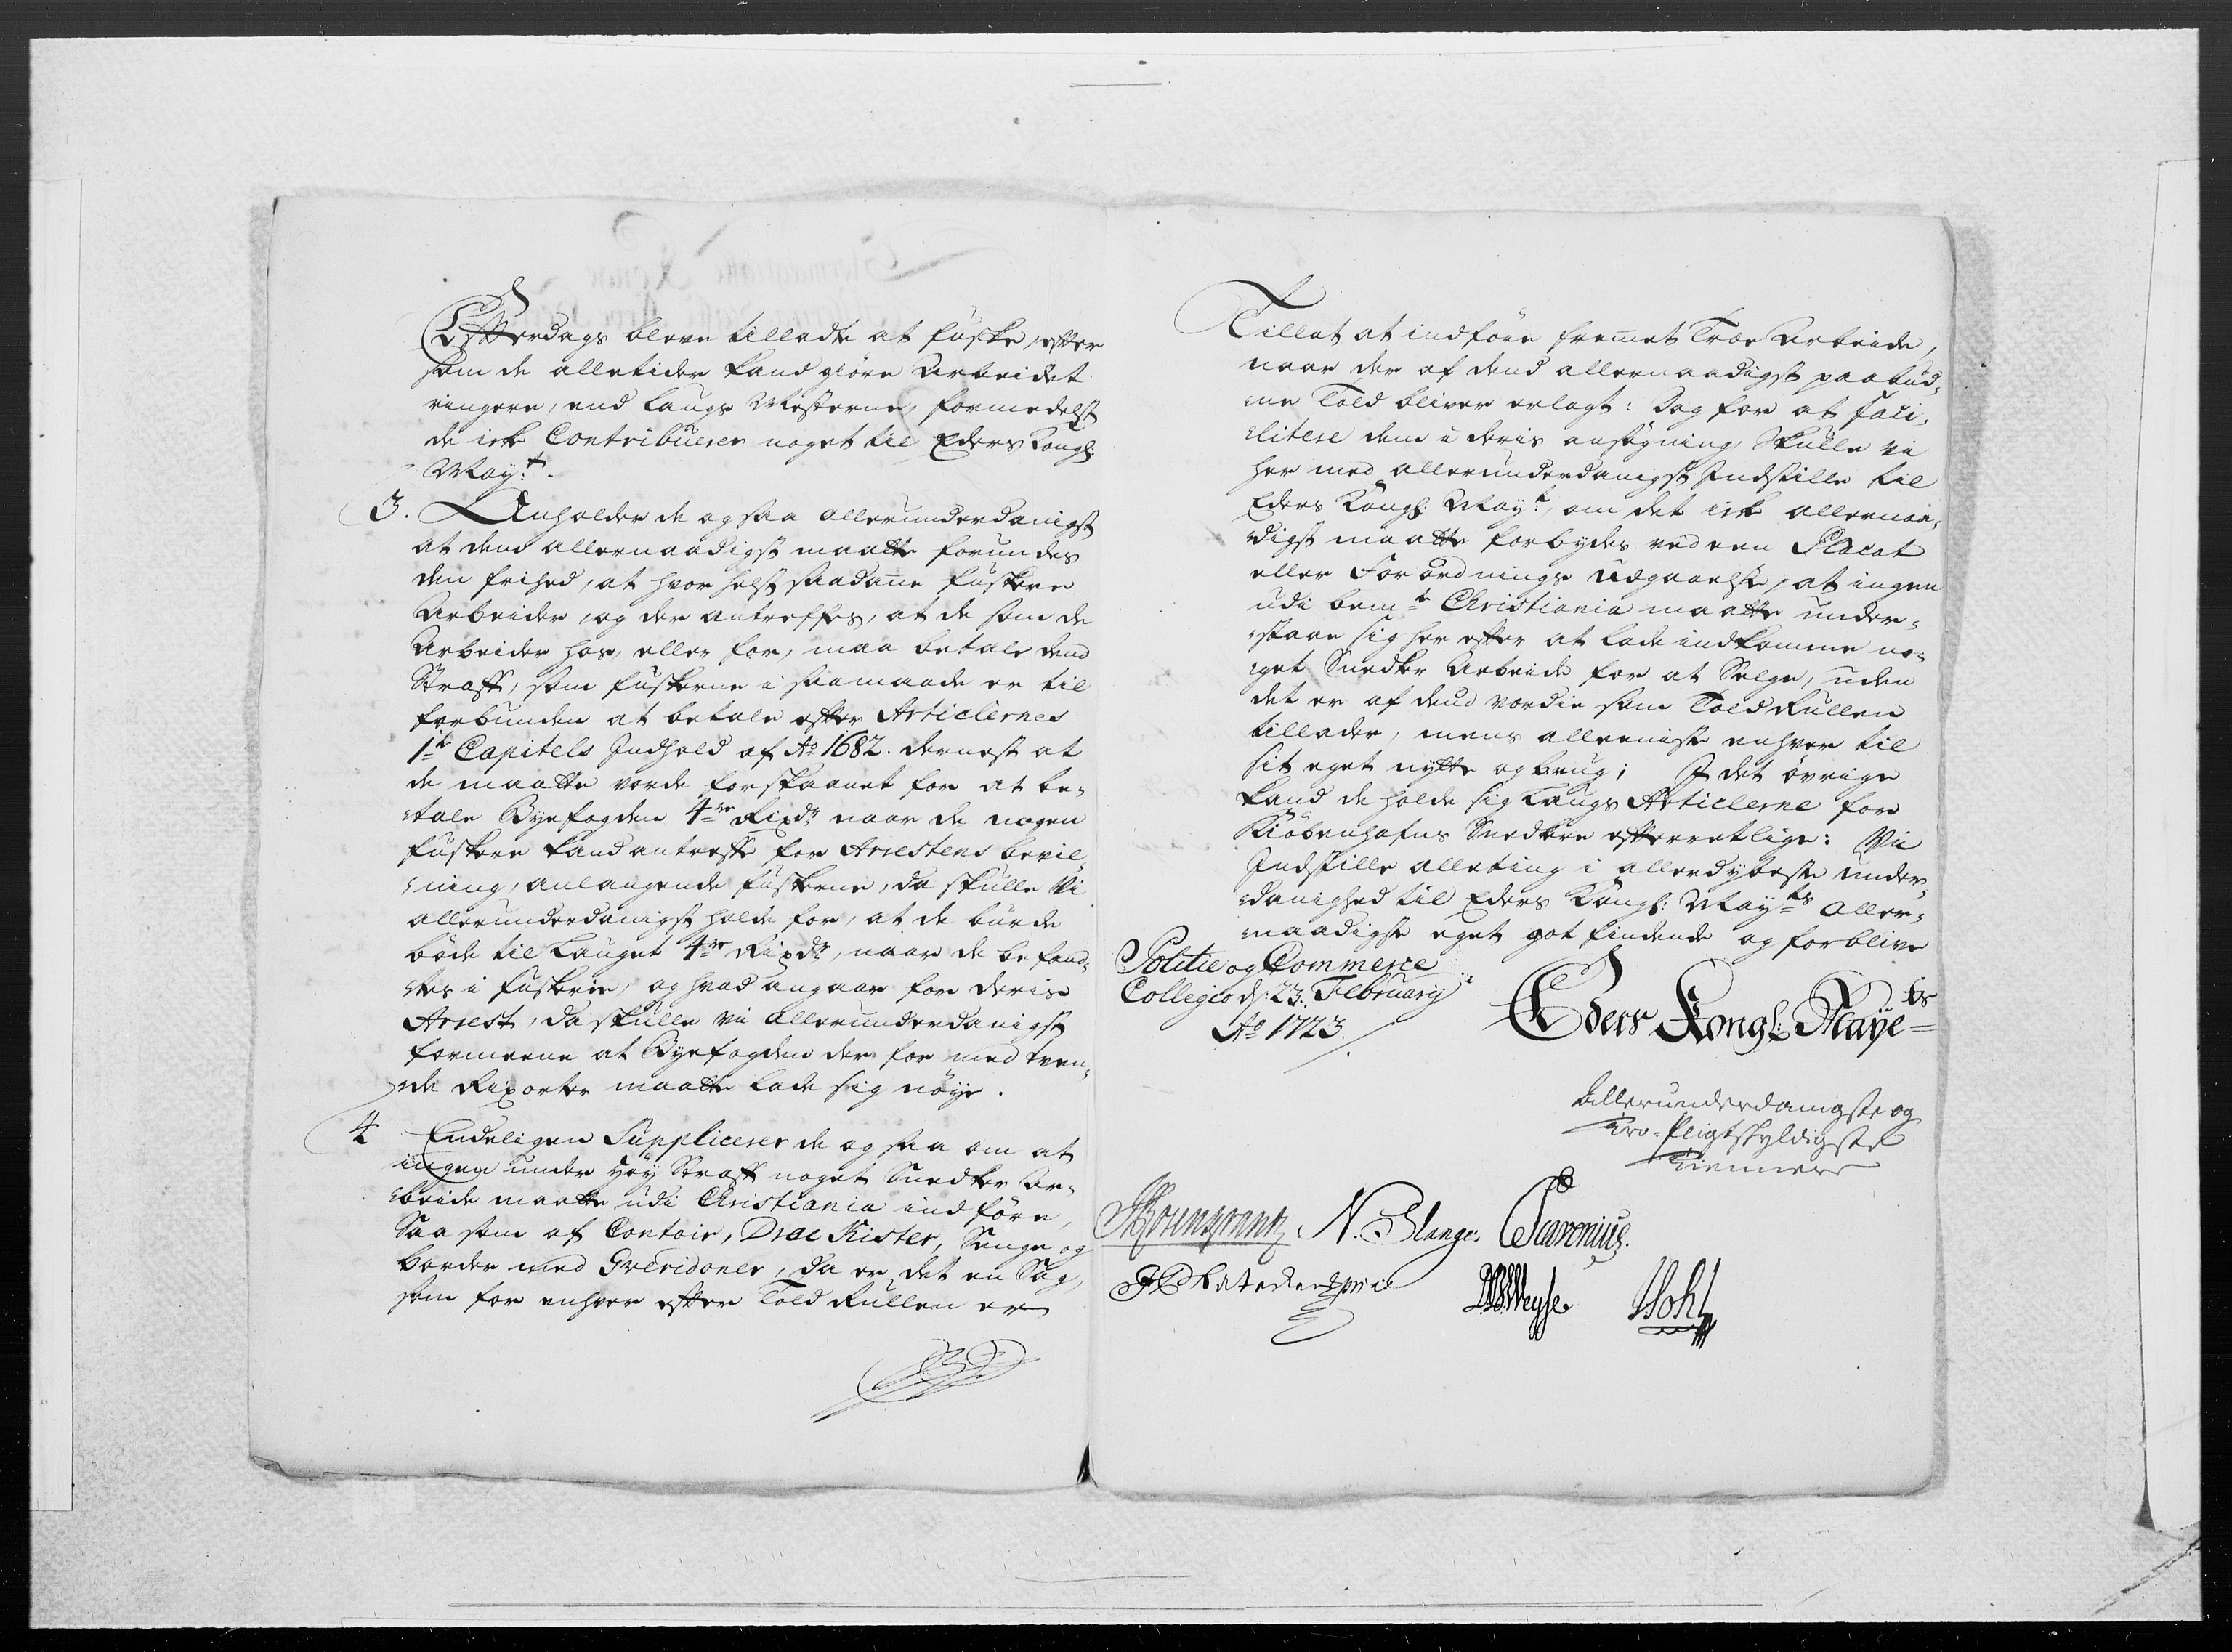 Efterdags bleve tilladte at fuske, efter
som de alletider kand giöre Arbeidet
ringere, end Laugs Mesterne, formedelst
de ick Contribuerer noget til Eders Kongl:
Mayt.
3. Anholder de og saa allerunderdanigst
at dend allernaadigst maatte forundes
den frihed, at hvor helst saadanne fuskere
Arbeider, og der antreffes, at de som de
Arbeider hos, eller for, maa betale dend
Straff, som fuskerne i saa maade er til
forbunden at betale efter Articlernes
1te Capitels Indhold af Ao 1682. dernest at
de maatte vorde forskaanet for at be-
tale Byefogden 4re Rixdr naar de nogen
fuskere kand antreffe for Arrestens bevil-
ning, anlangende fuskerne, da skulle Vi
allerunderdanigst holde for, at de burde
böde til Lauget 4re Rixdr, naar de befand-
tes i fuskerie, og hvad angaar for deris
Arrest, da skulle vi allerunderdanigst
formeene at Byefogden der for med tven-
de Rixorter maatte lade sig nöye.
4 Endeligen Suppliceres de og saa om at
ingen under höy Straff noget Snedker Ar-
beide maatte udi Christiania indföre,
Saa som af Contoir, Drae Kister, Senge og
border med Gveridoner, da er det en Sag,
som for enhver efter Told Rullen er
Tillat at indföre fremmet Træe Arbeide,
naar der af dend allernaadigst paabud-
ne Told bliver erlagt: Dog for at faci-
litere dem i deris ansögning Skulle vi
her med allerunderdanigst Indstille til
Eders Kongl: Mayt, om det ick allernaa-
digst maatte forbydes ved een Placat
eller Forordnings udgaaelse, at ingen
udi bemte Christiania maatte under-
staae sig her efter at lade indkomme no-
get Snedker Arbeide for at Selge, uden
det er af dend værdie som Told Rullen
tillader, mens alleeniste enhver til
sit eget nytte og brug; I det övrige
kand de holde sig Laugs Articlerne for
Kiöbenhafns Snedkere efterretlige: Vi
Indstille alleting i allerdybeste under-
danighed til Eders Kongl: Mayts Aller-
naadigste eget got findende og forblive
Politie og Commerce
Collegio d: 23. February
Ao 1723.
Eders Kongl: Mayets
Allerunderdanigste og
Troe-Pligtskyldigste
Tienere
N. Slange.
Weyse
Hohl